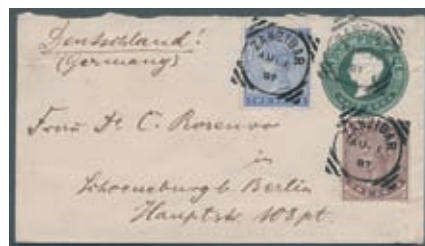 Deutschland!
(Germany)
ZANZIBAR
AU. 1
87
ZANZIBAR
87
ZANZIBAR
AU. 1
87
Frau Dr C. Rosenow
in
Schoeneburg b Berlin
Hauptstr. 108 pt.